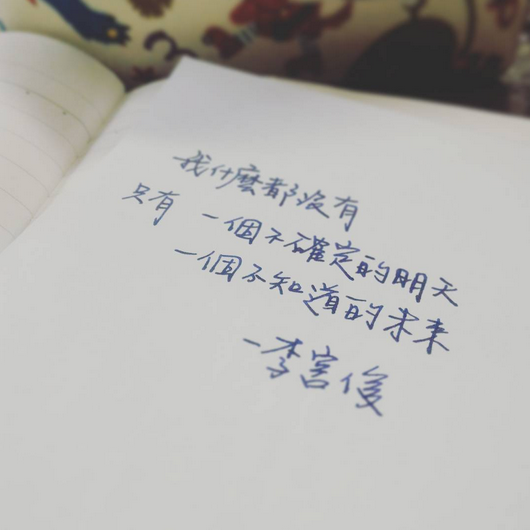 我什麼都沒有
只有 一個不確定的明天
一個不知道的未來
－李宮俊